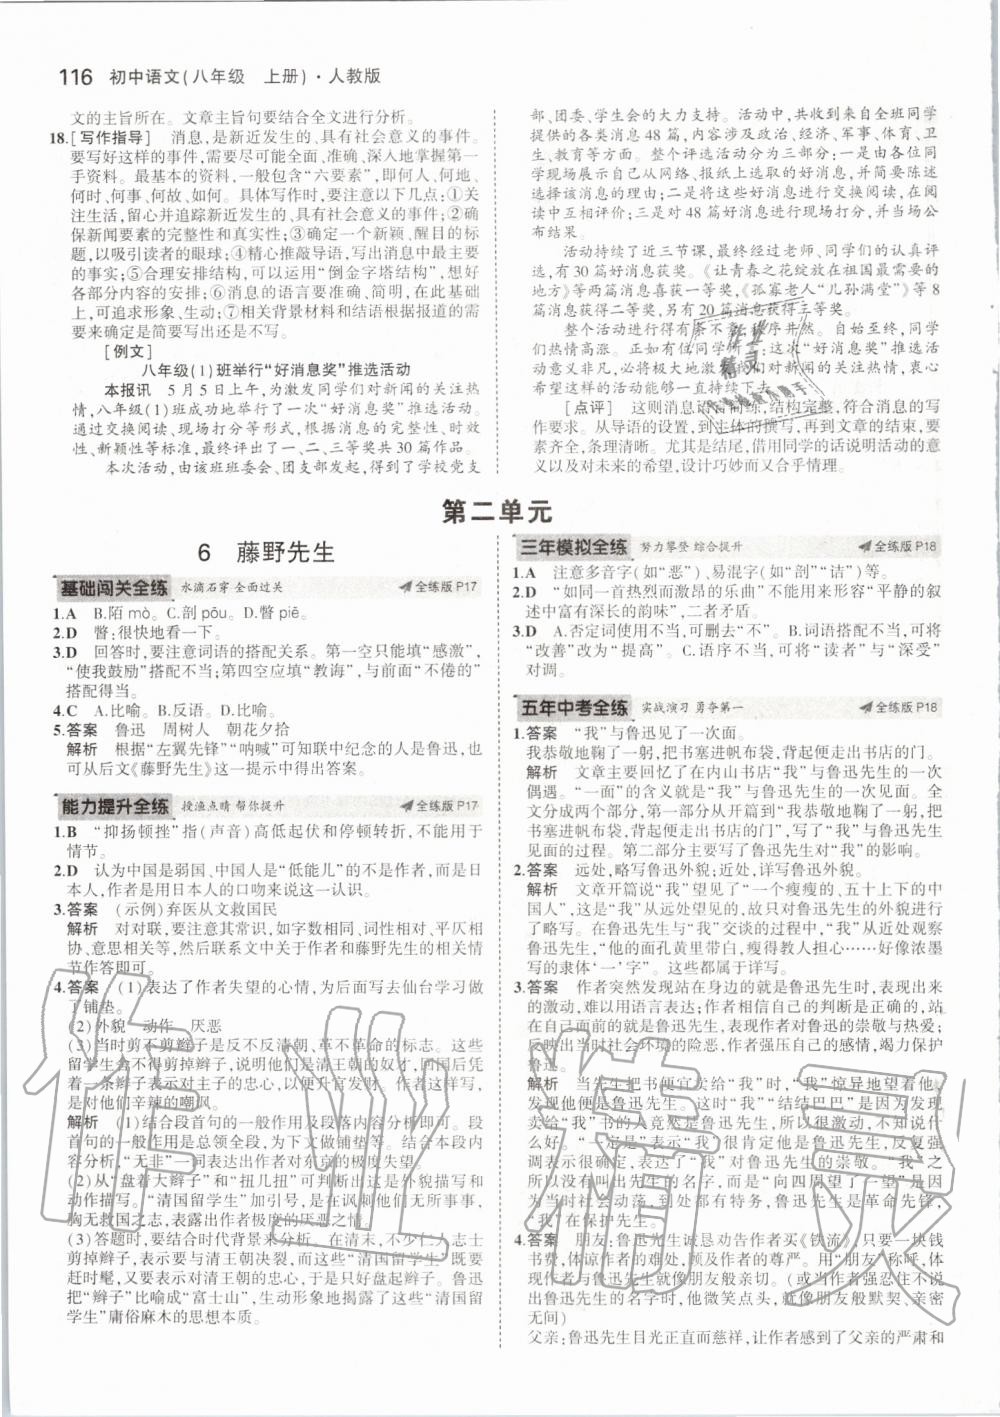 116 初中语文(八年级 上册)·人教版
文的主旨所在。文章主旨句要结合全文进行分析。
18.[写作指导] 消息,是新近发生的、具有社会意义的事件。
要写好这样的事件,需要尽可能全面、准确、深入地掌握第一
手资料。最基本的资料,一般包含“六要素”,即何人、何地、
何时、何事、何故、如何。具体写作时,要注意以下几点:①关
注生活,留心并追踪新近发生的、具有社会意义的事件;②确
保新闻要素的完整性和真实性;③确定一个新颖、醒目的标
题,以吸引读者的眼球;④精心推敲导语,写出消息中最主要
的事实;⑤合理安排结构,可以运用“倒金字塔结构”,想好
各部分内容的安排;⑥消息的语言要准确、简明,在此基础
上,可追求形象、生动;⑦相关背景材料和结语根据报道的需
要来确定是简要写出还是不写。
[例文]
八年级(1)班举行“好消息奖”推选活动
本报讯 5月5日上午,为激发同学们对新闻的关注热
情,八年级(1)班成功地举行了一次“好消息奖”推选活动。
通过交换阅读、现场打分等形式,根据消息的完整性、时效
性、新颖性等标准,最终评出了一、二、三等奖共30篇作品。
本次活动,由该班班委会、团支部发起,得到了学校党支
部、团委、学生会的大力支持。活动中,共收到来自全班同学
提供的各类消息48篇,内容涉及政治、经济、军事、体育、卫
生、教育等方面。整个评选活动分为三部分:一是由各位同
学现场展示自己从网络、报纸上选取的好消息,并简要陈述
选择该消息的理由;二是将这些消息进行交换阅读,在阅读
读中互相评价;三是对48篇好消息进行现场打分,并当场公
布结果。
活动持续了近三节课,最终经过老师、同学们的认真评
选,有30篇好消息获奖。《让青春之花绽放在祖国最需要的
地方》等两篇消息喜获一等奖,《孤寡老人“儿孙满堂”》等8
篇消息获得二等奖,另有20篇消息获三等奖。
整个活动进行得有条不紊、秩序井然。自始至终,同学
们热情高涨。正如有位同学所言:“这样的‘好消息’推选活
动意义非凡,必将极大地激发我们对新闻的关注热情,衷心
希望这样的活动能够一直持续下去。”
[点评] 这则消息语言简练,结构完整,符合消息的写
作要求。从导语的设置,到主体的撰写,再到文章的结束,要
素齐全,条理清晰。尤其是结尾,借用同学的话说明活动的意
义以及对未来的希望,设计巧妙而又合乎情理。
第二单元
6 藤野先生
基础闯关全练 水滴石穿 全面过关 全练版P17
1.A B.陌mò。C.剖pōu。D.瞥piē。
2.D 瞥:很快地看一下。
3.D 回答时,要注意词语的搭配关系。第一空只能填“感激”,
“使我鼓励”搭配不当;第四空应填“教诲”,与前面“不倦的”
搭配得当。
4.C A.比喻。B.反语。D.比喻。
5.答案 鲁迅 周树人 朝花夕拾
解析 根据“左翼先锋”“呐喊”可知联中纪念的人是鲁迅,也
可从后文《藤野先生》这一提示中得出答案。
能力提升全练 授渔点睛 帮你提升 全练版P17
1.B “抑扬顿挫”指(声音)高低起伏和停顿转折,不能用于
情节。
2.D 认为中国是弱国、中国人是“低能儿”的不是作者,而是日
本人,作者是用日本人的口吻来说这一认识。
3.答案 (示例)弃医从文救国民
解析 对对联,要注意其常识,如字数相同、词性相对、平仄相
协、意思相关等,然后联系文中关于作者和藤野先生的相关情
节作答即可。
4.答案 (1)表达了作者失望的心情,为后面写去仙台学习做
了铺垫。
(2)外貌 动作 厌恶
(3)当时剪不剪辫子是反不反清朝、革不革命的标志。这些
留学生舍不得剪掉辫子,说明他们是清王朝的奴才,回国后凭
一条辫子表示对主子的忠心,以便升官发财。作者这样写,
是对他们辛辣的嘲讽。
解析 (1)结合首句的一般作用及段落内容分析即可。段
首句的一般作用是总领全段,为下文做铺垫等。结合本段内
容分析,“无非”一词表达出作者对东京的极度失望。
(2)从“盘着大辫子”和“扭几扭”可知这是外貌描写和
动作描写。“清国留学生”加引号,是在讽刺他们无所事事,
胸无救国之志,表露出作者极度的厌恶之情。
(3)答题时,要结合时代背景来分析。本来,不少仁人志士
剪掉辫子,表示要与清王朝决裂。而这些“清国留学生”既要
赶时髦,又要表示对清王朝的忠心,于是只好盘起辫子。鲁迅
把“辫子”比喻成“富士山”,生动形象地揭露了这些“清国留
学生”庸俗麻木的思想本质。
三年模拟全练 努力攀登 综合提升 全练版P18
1.A 注意多音字(如“恶”)、易混字(如“剖”“诘”)等。
2.D “如同一首热烈而激昂的乐曲”不能用于“平静的叙
述中富有深长的韵味”,二者矛盾。
3.D A.否定词使用不当,可删去“不”。B.词语搭配不当,可将
“改善”改为“提高”。C.语序不当,可将“读者”与“深受”
对调。
五年中考全练 实战演习 勇夺第一 全练版P18
1.答案 “我”与鲁迅见了一次面。
我恭敬地鞠了一躬,把书塞进帆布袋,背起便走出书店的门。
解析 文章主要回忆了在内山书店“我”与鲁迅先生的一次
偶遇。“一面”的含义就是“我”与鲁迅先生的一次见面。全
文分成两个部分,第一部分从开篇到“我恭敬地鞠了一躬,把
书塞进帆布袋,背起便走出书店的门”,写了“我”与鲁迅先生
见面的过程。第二部分主要写了鲁迅先生对“我”的影响。
2.答案 远处,略写鲁迅外貌;近处,详写鲁迅外貌。
解析 文章开篇说“我”望见了“一个瘦瘦的、五十上下的中
国人”,这是“我”从远处望见,所以作者对鲁迅先生的外貌进行
了略写。在鲁迅先生与“我”交谈的过程中,“我”从近处观察
鲁迅先生,“他的面孔黄里带白,瘦得教人担心……好像浓墨
写的隶体‘一’字”。这些都属于详写。
3.答案 作者突然发现站在身边的就是鲁迅先生时,表现出来
的激动,难以用语言表达;作者相信自己的判断是正确的,站
在自己面前的就是鲁迅先生,表现作者对鲁迅的崇敬与热爱;
反映出当时社会环境的险恶,作者强压自己的感情,竭力保护
鲁迅。
解析 当先生把书便宜卖给“我”时,“我”惊异地望着他,
发现他便是鲁迅先生。这时“我”“结结巴巴”是因为发现
卖给“我”书的人竟然是鲁迅先生,所以很激动,不知说什
么好。“一定是”表示“我”很肯定他是鲁迅先生。破折号和感叹
表示很确定,都表现了“我”对鲁迅先生的崇敬。“我”之
所以没有喊出先生的名字,而是“向四周望了一下”是因
为当时社会动荡,到处都有特务,鲁迅先生是革命先锋,
“我”在保护先生。
4.答案 朋友:鲁迅先生诚恳劝告作者买《铁流》,只要一块钱
书费,体谅作者的难处,顾及作者的尊严。用“朋友”称呼,体
现了鲁迅先生就像朋友一般亲切。(或当作者强忍住不说出
鲁迅先生的名字时,他微笑点头,就像朋友般默契、亲密
无间)
父亲:鲁迅先生目光正直而慈祥,让作者感到了父亲的严肃和
作业精灵